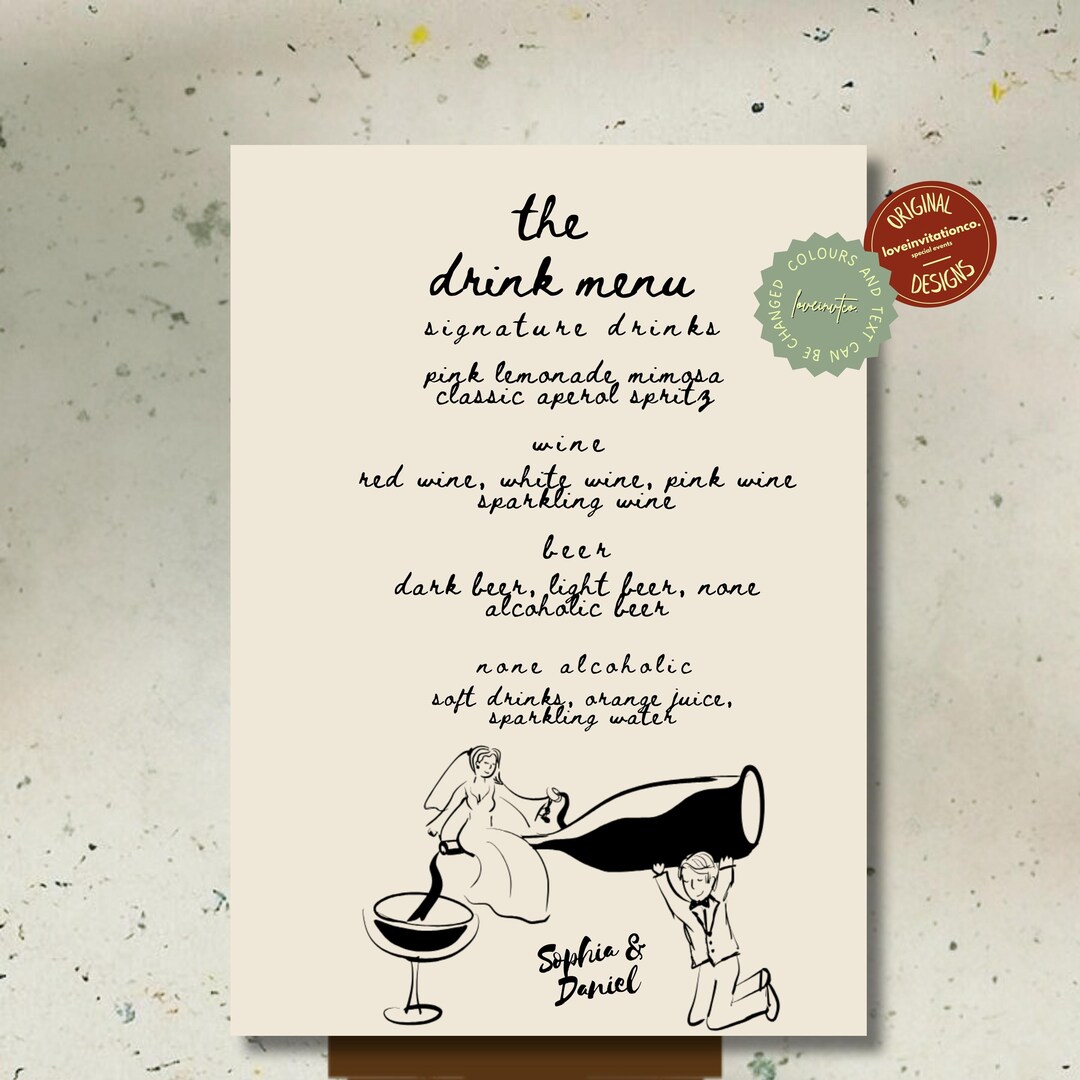 the
drink menu
signature drinks
pink lemonade mimosa
classic aperol spritz
wine
red wine, white wine, pink wine
sparkling wine
beer
dark beer, light beer, none
alcoholic beer
none alcoholic
soft drinks, orange juice,
sparkling water
Sophia &
Daniel
ORIGINAL
loveinvitationco.
special events
DESIGNS
COLOURS AND TEXT CAN BE CHANGED
loveinvtco.